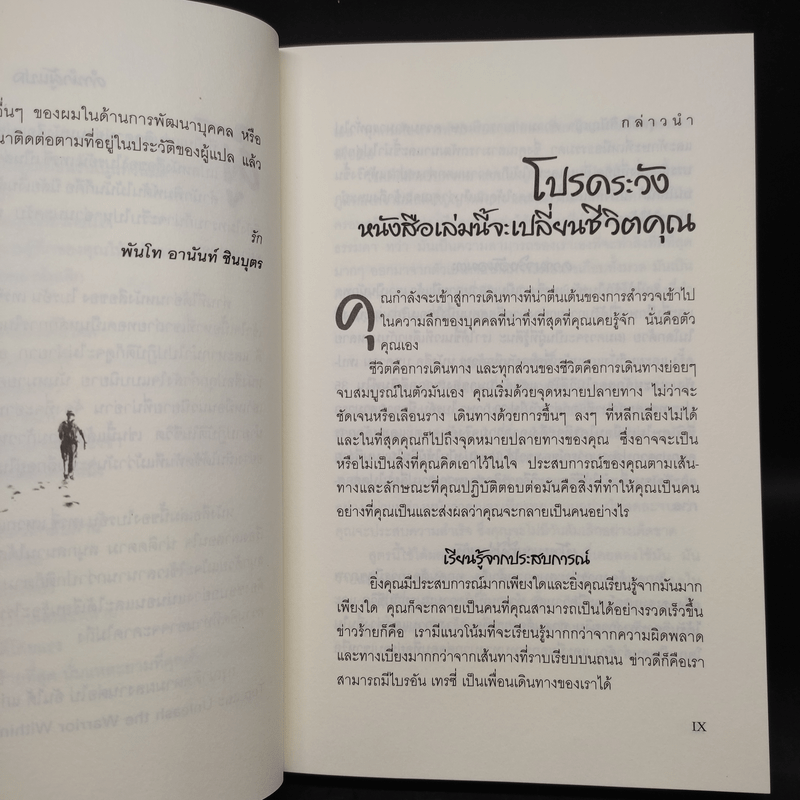 อื่นๆ ของผมในด้านการพัฒนาบุคคล หรือ
นาติดต่อตามที่อยู่ในประวัติของผู้แปล แล้ว
รัก
พันโท อานันท์ ชินบุตร
กล่าวนำ
โปรดระวัง
หนังสือเล่มนี้จะเปลี่ยนชีวิตคุณ
คุณกำลังจะเข้าสู่การเดินทางที่น่าตื่นเต้นของการสำรวจเข้าไป
ในความลึกของบุคคลที่น่าทึ่งที่สุดที่คุณเคยรู้จัก นั่นคือตัว
คุณเอง
ชีวิตคือการเดินทาง และทุกส่วนของชีวิตคือการเดินทางย่อยๆ
จบสมบูรณ์ในตัวมันเอง คุณเริ่มด้วยจุดหมายปลายทาง ไม่ว่าจะ
ชัดเจนหรือเลือนราง เดินทางด้วยการขึ้นๆ ลงๆ ที่หลีกเลี่ยงไม่ได้
และในที่สุดคุณก็ไปถึงจุดหมายปลายทางของคุณ ซึ่งอาจจะเป็น
หรือไม่เป็นสิ่งที่คุณคิดเอาไว้ในใจ ประสบการณ์ของคุณตามเส้น-
ทางและลักษณะที่คุณปฏิบัติตอบต่อมันคือสิ่งที่ทำให้คุณเป็นคน
อย่างที่คุณเป็นและส่งผลว่าคุณจะกลายเป็นคนอย่างไร
เรียนรู้จากประสบการณ์
ยิ่งคุณมีประสบการณ์มากเพียงใดและยิ่งคุณเรียนรู้จากมันมาก
เพียงใด คุณก็จะกลายเป็นคนที่คุณสามารถเป็นได้อย่างรวดเร็วขึ้น
ข่าวร้ายก็คือ เรามีแนวโน้มที่จะเรียนรู้มากกว่าจากความผิดพลาด
และทางเบี่ยงมากกว่าจากเส้นทางที่ราบเรียบบนถนน ข่าวดีก็คือเรา
สามารถมีไบรอัน เทรซี่ เป็นเพื่อนเดินทางของเราได้
IX